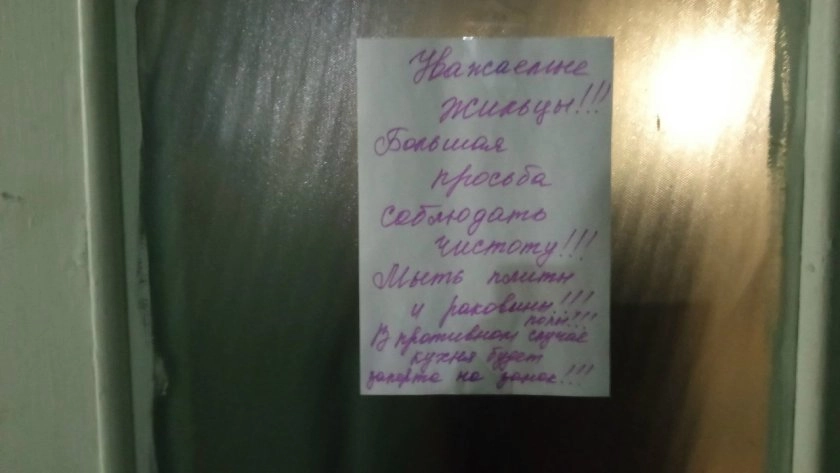 Уважаемые
жильцы!!!
Большая
просьба
соблюдать
чистоту!!!
Мыть плиты
и раковины!!!
полы!!!
В противном случае
кухня будет
заперта на замок!!!